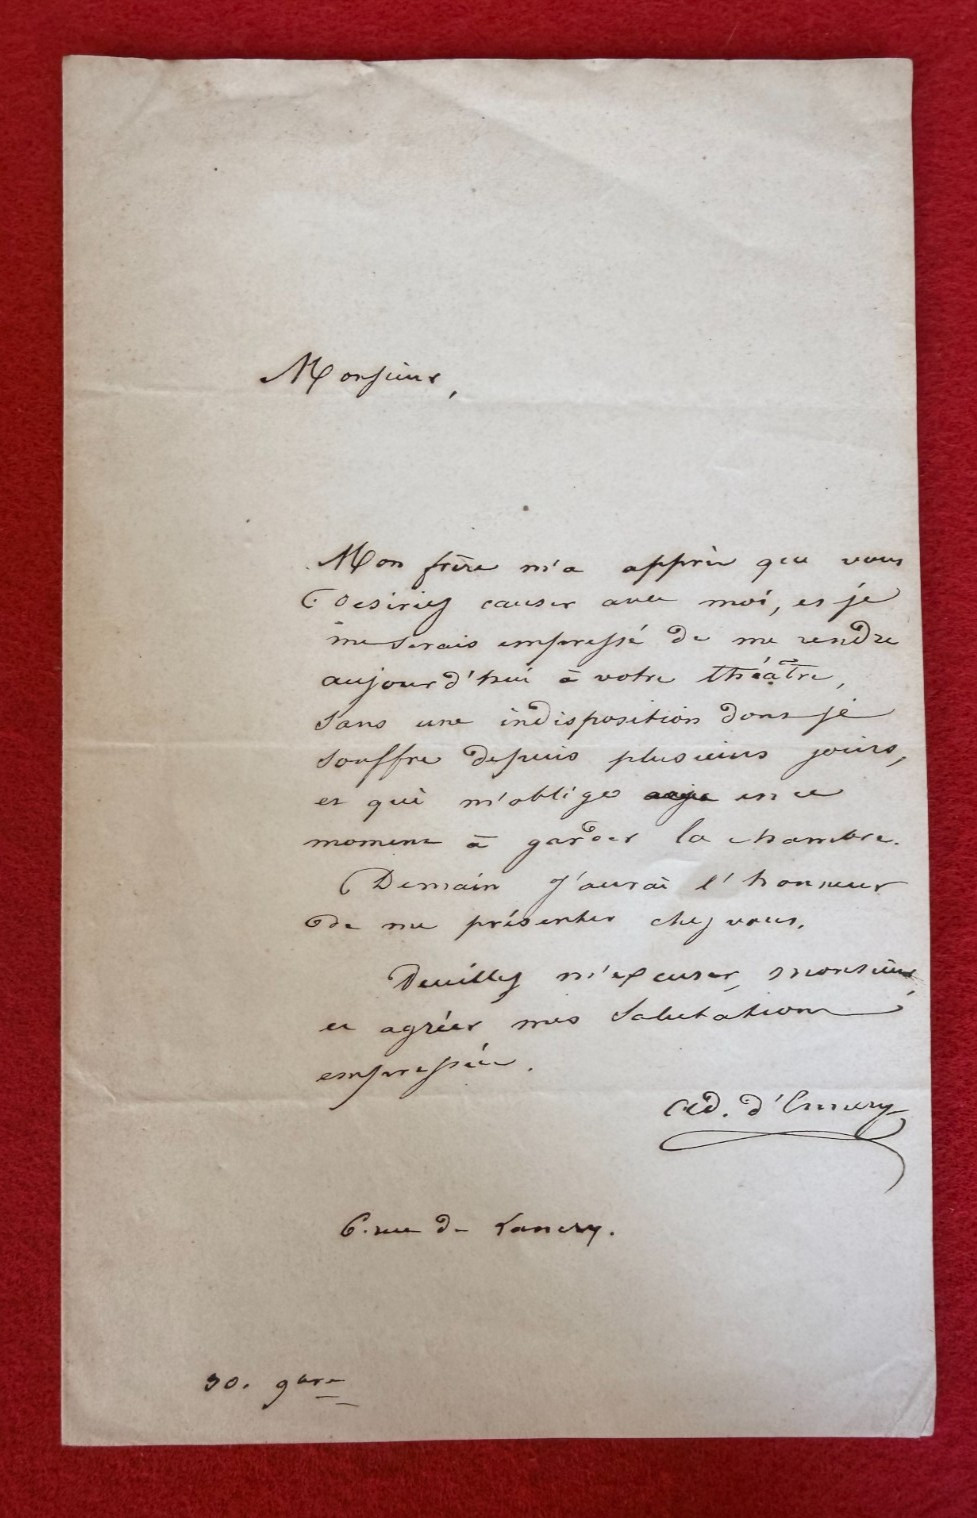 Monsieur,
Mon frère m'a appris que vous
Desiriez causer avec moi, et je
me serais empressé de me rendre
aujourd'hui à votre théâtre,
sans une indisposition dont je
souffre depuis plusieurs jours,
et qui m'oblige en ce
moment à garder la chambre.
Demain j'aurai l'honneur
de me présenter chez vous.
Veuillez m'excuser, monsieur,
et agréer mes salutations
empressées.
Ad. d'Ennery
6. rue de Lancry.
30.